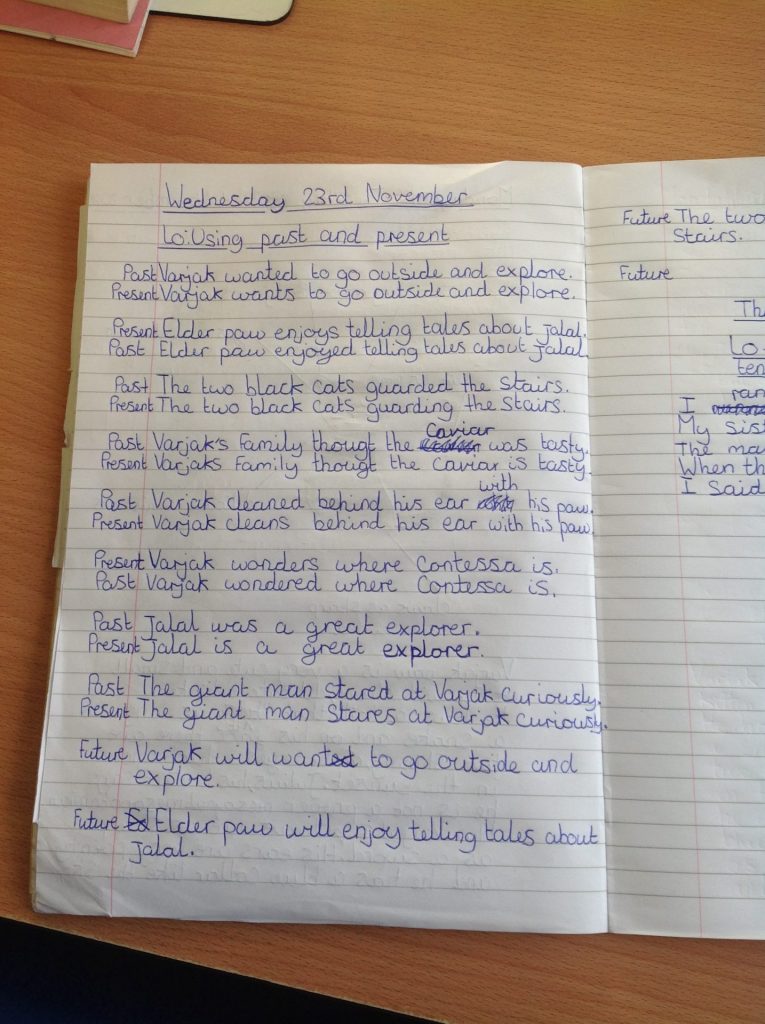 Wednesday 23rd November
Lo: Using past and present
Past Varjak wanted to go outside and explore.
Present Varjak wants to go outside and explore.
Present Elder paw enjoys telling tales about Jalal.
Past Elder paw enjoyed telling tales about Jalal.
Past The two black cats guarded the stairs.
Present The two black cats guarding the stairs.
Past Varjak's family thougt the Caviar was tasty.
Present Varjaks family thougt the Caviar is tasty.
Past Varjak cleaned behind his ear with his paw.
Present Varjak cleans behind his ear with his paw.
Present Varjak wonders where Contessa is.
Past Varjak wondered where Contessa is.
Past Jalal was a great explorer.
Present Jalal is a great explorer.
Past The giant man stared at Varjak curiously.
Present The giant man stares at Varjak curiously.
Future Varjak will want to go outside and
explore.
Future Elder paw will enjoy telling tales about
Jalal.
Future The two
Stairs.
Future
Th
Lo
ten
ran
I
My Sist
The ma
When th
I Said